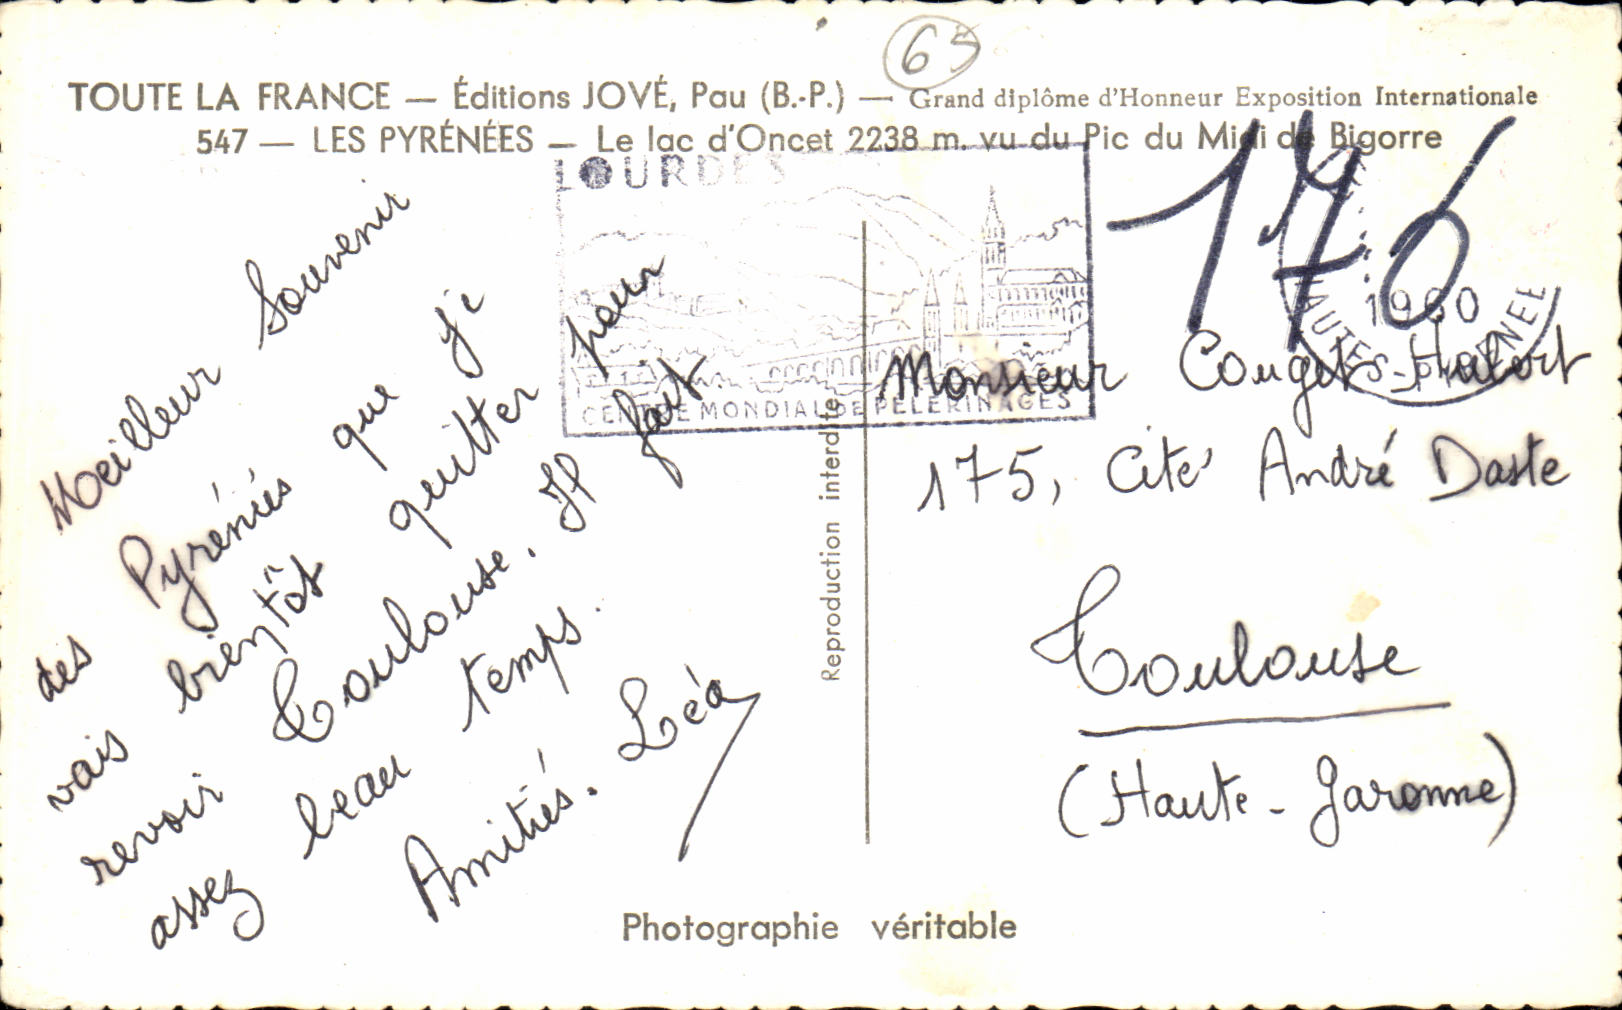 65
TOUTE LA FRANCE — Éditions JOVÉ, Pau (B.-P.) — Grand diplôme d'Honneur Exposition Internationale
547 — LES PYRÉNÉES — Le lac d'Oncet 2238 m. vu du Pic du Midi de Bigorre
LOURDES
CENTRE MONDIAL DE PÈLERINAGES
176
1960
HAUTES-PYRÉNÉES
Meilleur Souvenir
des Pyrénées que je
vais bientôt quitter pour
revoir Toulouse. Il fait
assez beau temps.
Amitiés. Léa
Reproduction interdite
Monsieur
175, Cité André Daste
Toulouse
(Haute-Garonne)
Photographie véritable